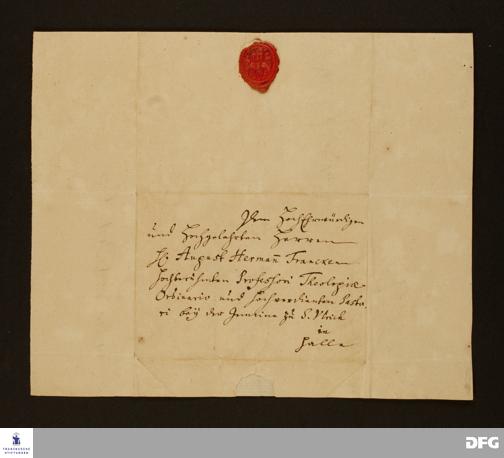 Dem HochEhrwürdigen
und Hochgelahrten Herren
H. August Hermañ Francken
Hochberühmten Professori Theologiæ
Ordinario und Hochverdienten Pasto-
ri bey der Gemeine zu S. Ulrich
in
Halle
FRANCKESCHE
STIFTUNGEN
DFG